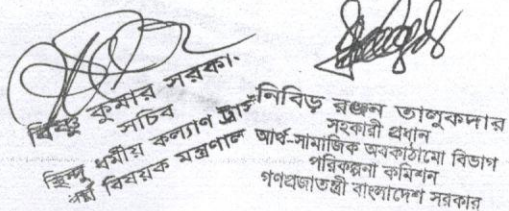 বিষ্ণু কুমার সরকার
সচিব
হিন্দু ধর্মীয় কল্যাণ ট্রাস্ট
ধর্ম বিষয়ক মন্ত্রণাল
নিবিড় রঞ্জন তালুকদার
সহকারী প্রধান
আর্থ-সামাজিক অবকাঠামো বিভাগ
পরিকল্পনা কমিশন
গণপ্রজাতন্ত্রী বাংলাদেশ সরকার